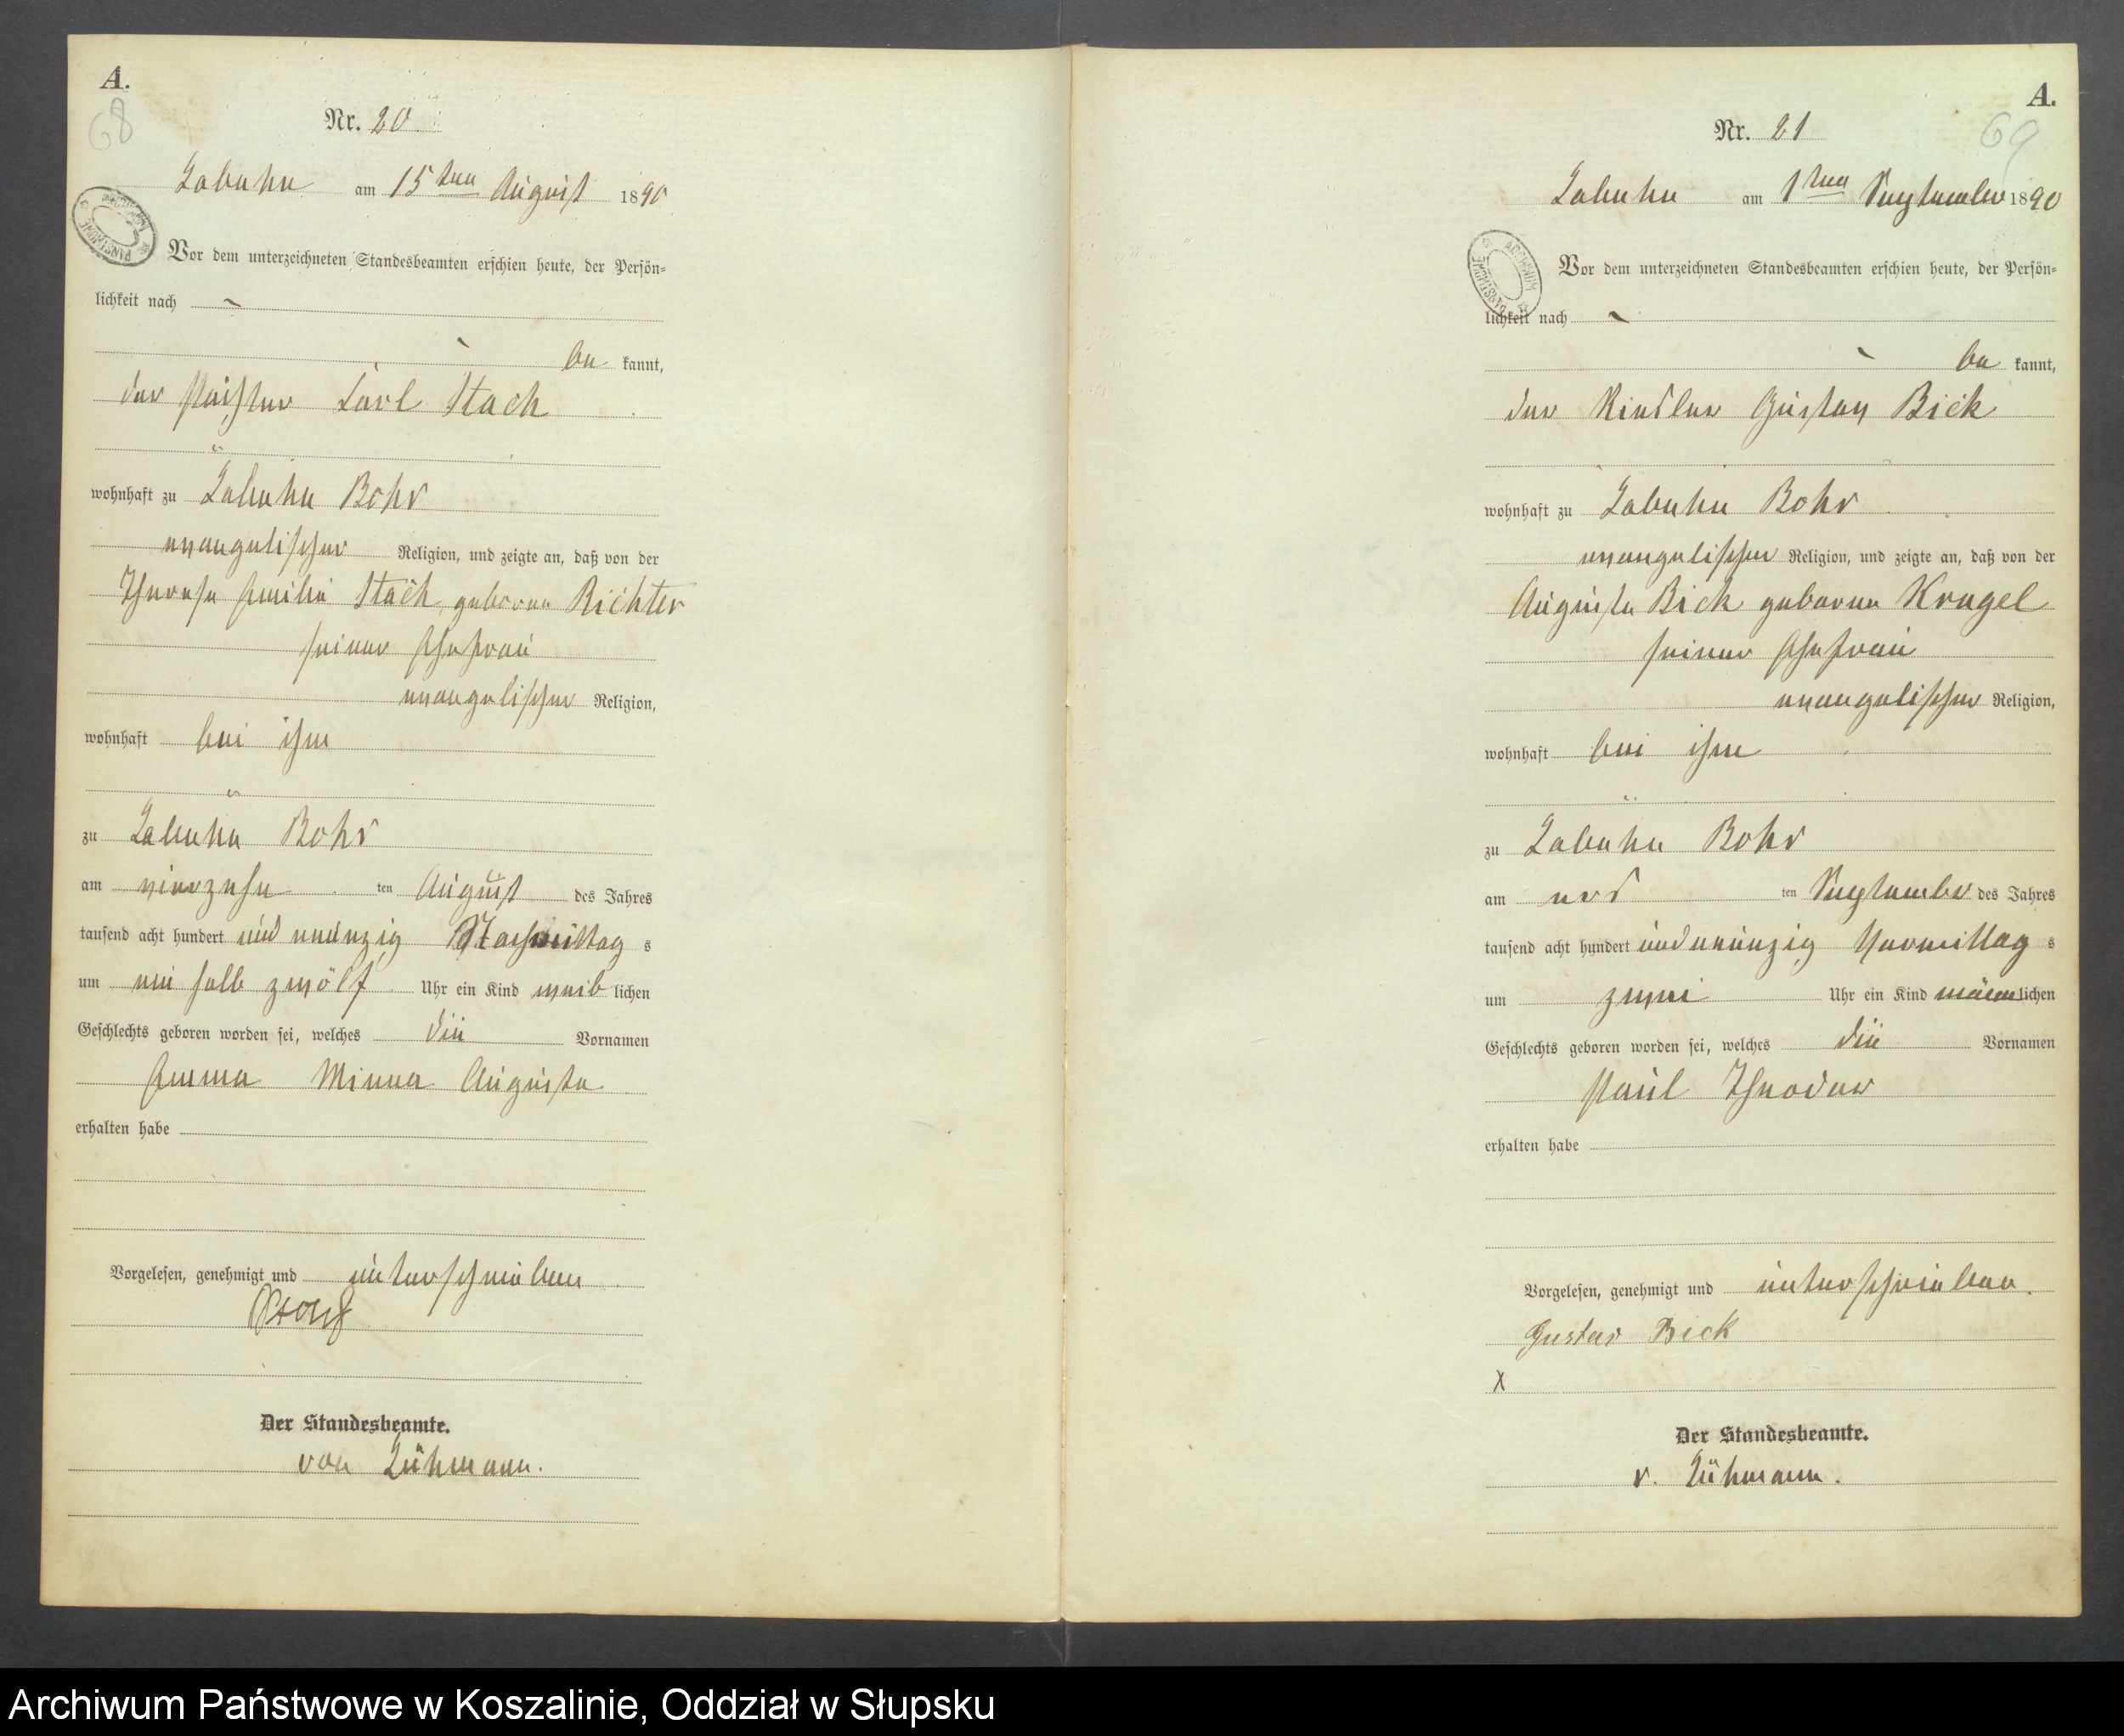 A.
68
Nr. 20.
Labuhn am 15ten August 1890
Vor dem unterzeichneten Standesbeamten erschien heute, der Persön=
lichkeit nach
be kannt,
der Pächter Carl Stach
wohnhaft zu Labuhn Bohr
evangelischer Religion, und zeigte an, daß von der
Therese Emilie Stach, geborne Richter
seiner Ehefrau
evangelischer Religion,
wohnhaft bei ihm
zu Labuhn Bohr
am vierzehn ten August des Jahres
tausend acht hundert und neunzig Nachmittag s
um ein halb zwölf Uhr ein Kind weib lichen
Geschlechts geboren worden sei, welches die Vornamen
Emma Minna Auguste
erhalten habe
Vorgelesen, genehmigt und unterschrieben
Der Standesbeamte.
von Lühmann.
A.
69
Nr. 21
Labuhn am 1ten September 1890
Vor dem unterzeichneten Standesbeamten erschien heute, der Persön=
lichkeit nach
be kannt,
der Gustav Bick
wohnhaft zu Labuhn Bohr
evangelischer Religion, und zeigte an, daß von der
Auguste Bick geborne Kragel
seiner Ehefrau
evangelischer Religion,
wohnhaft bei ihm
zu Labuhn Bohr
am ers ten September des Jahres
tausend acht hundert und neunzig Vormittag s
um zwei Uhr ein Kind männlichen
Geschlechts geboren worden sei, welches die Vornamen
Paul Theodor
erhalten habe
Vorgelesen, genehmigt und unterschrieben.
Gustav Bick
X
Der Standesbeamte.
v. Lühmann.
Archiwum Państwowe w Koszalinie, Oddział w Słupsku